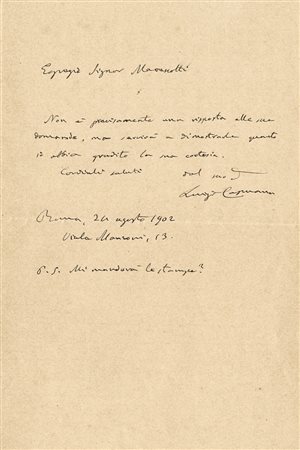 Egregio Signor
Non è precisamente una risposta alla sua
domanda, ma servirà a dimostrarle quanto
io abbia gradito la sua cortesia.
Cordiali saluti dal suo
Luigi Capuana
Roma, 24 agosto 1902
Viale Manzoni, 13.
P.S. Mi manderà le stampe?